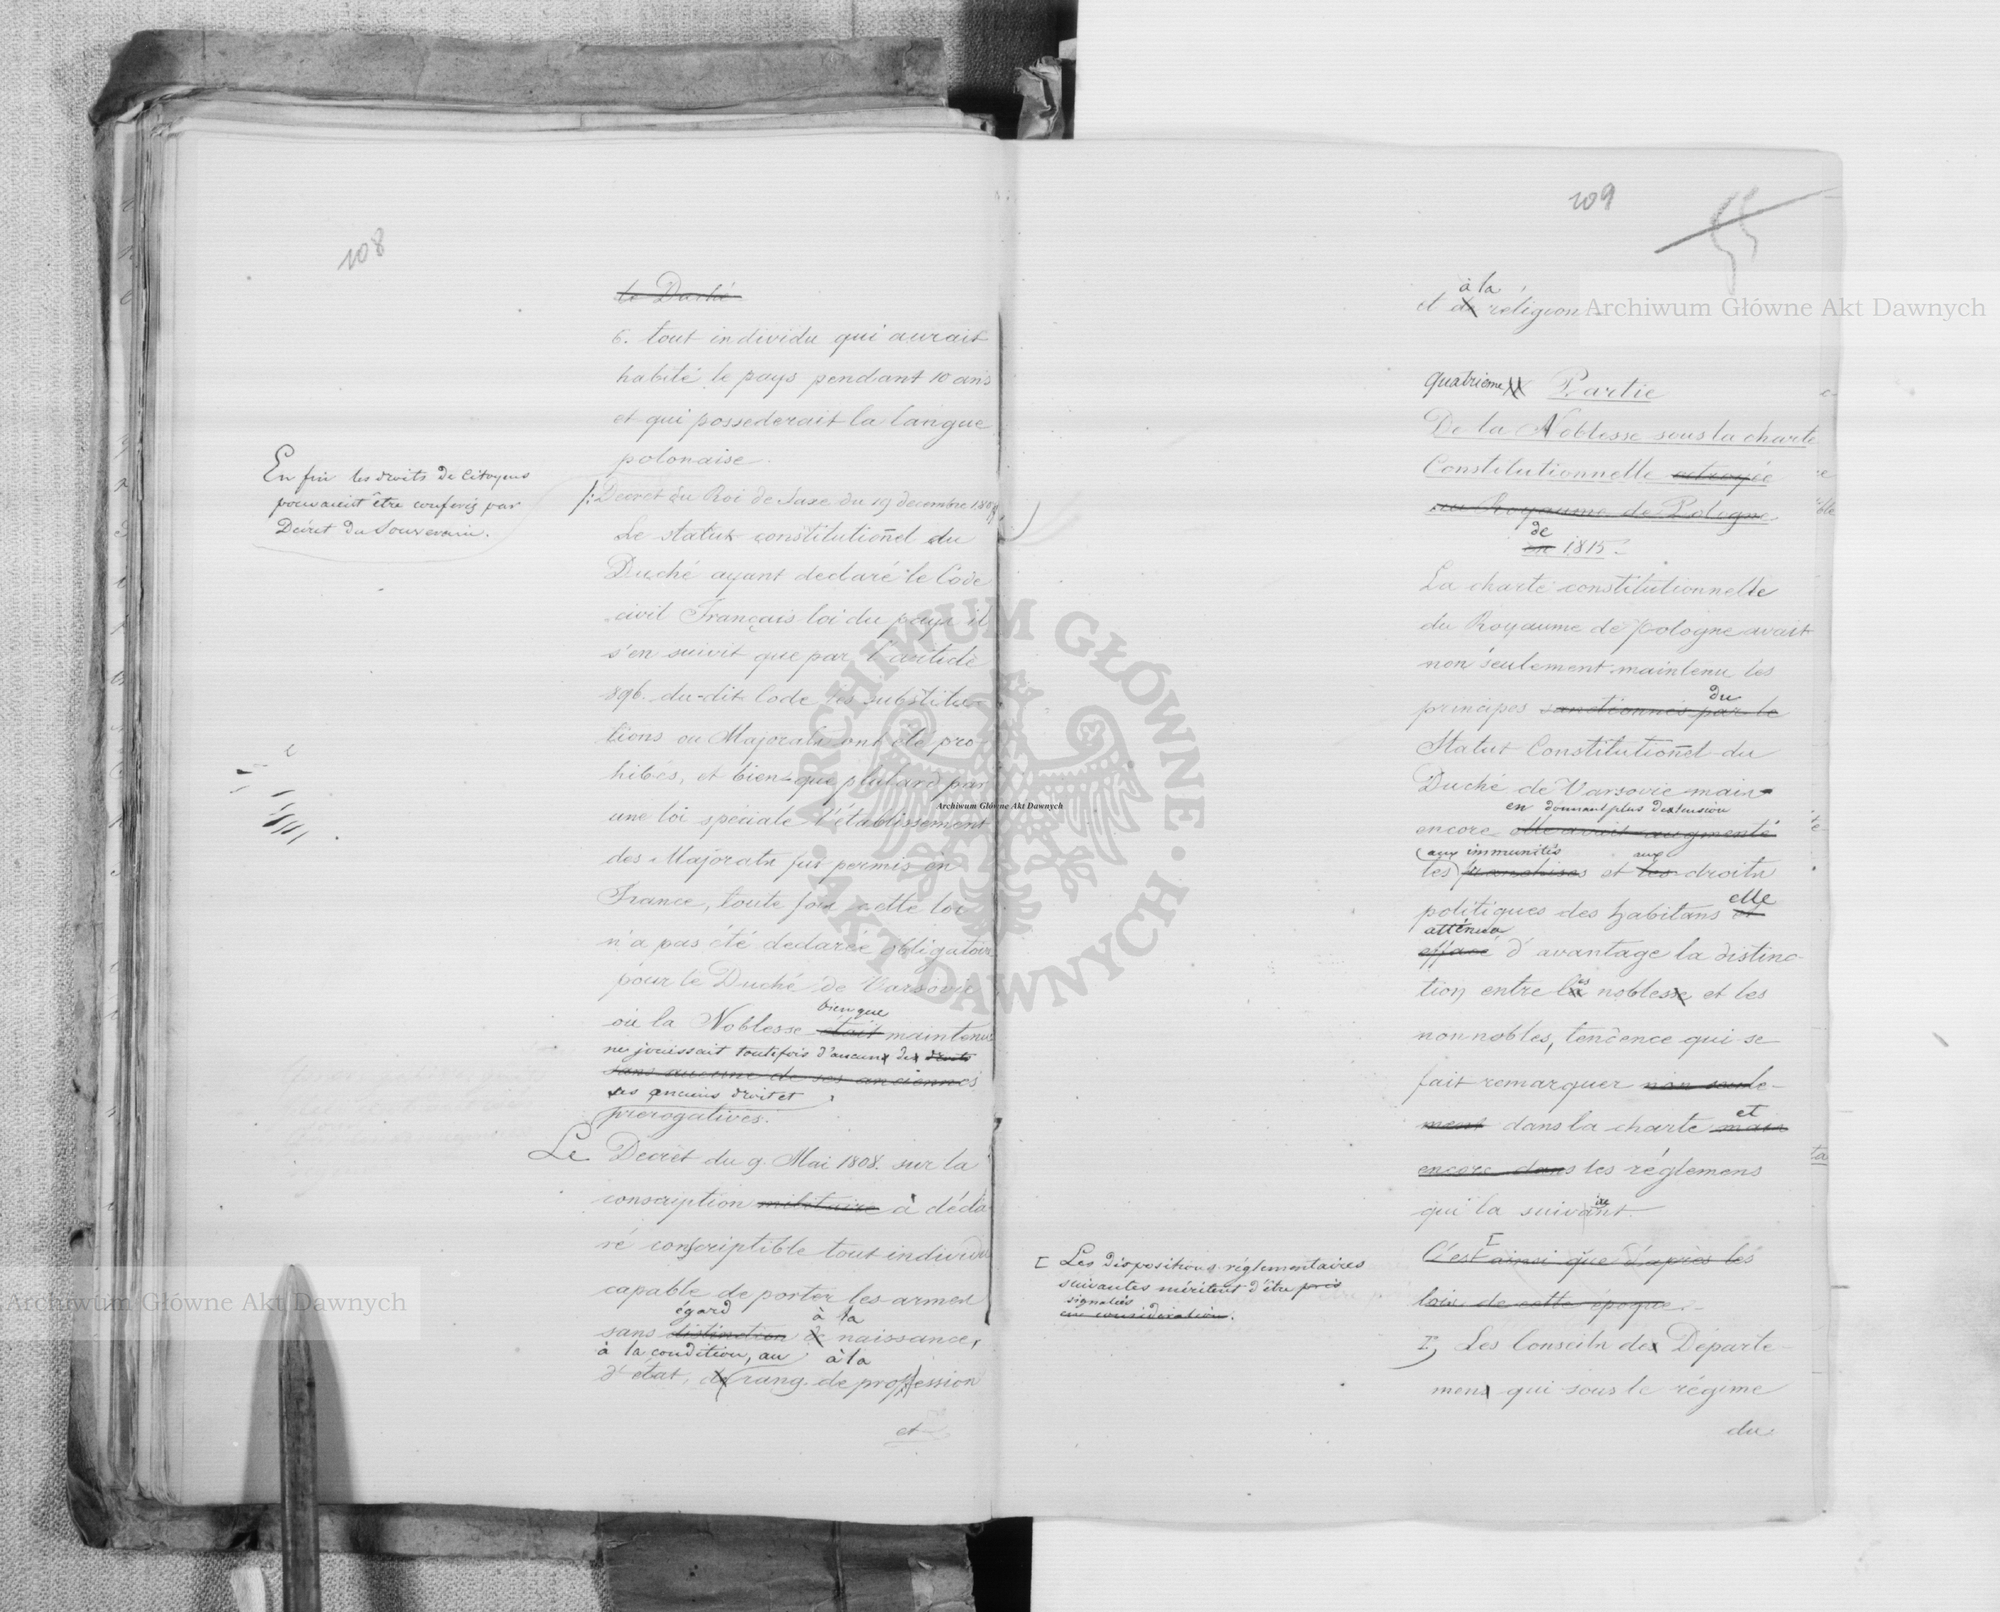 108
le Duché
6. tout individu qui aurait
habité le pays pendant 10 ans
et qui possederait la langue
polonaise.
En fin les droits de Citoyens
pouvaient être conferés par
Decret du Souverain.
/: Decret du Roi de Saxe du 19 decembre 1807
Le statut constitutionnel du
Duché ayant declaré le Code
civil Français loi du pays il
s'en suivit que par l'article
896. du-dit Code les substitu-
tions ou Majorats ont été pro
hibés, et bien que plutard par
une loi spéciale l'établissement
des Majorats fut permis en
France, toute fois cette loi
n'a pas été declarée obligatoire
pour le Duché de Varsovie
bien que
où la Noblesse était maintenue
ne jouissait toutefois d'aucun de droits
sans aucune de ses anciennes
ses anciens droit et
prerogatives.
Le Decret du 9. Mai 1808. sur la
conscription militaire à décla
ré conscriptible tout individu
capable de porter les armes
égard à la
sans distinction de naissance,
à la condition, au à la
d'état, de rang, de profession
et
109
55
à la
et de réligion
Quatrieme Partie
De la Noblesse sous la charte
Constitutionnelle octroyée
au Royaume de Pologne
de
en 1815.
La charte constitutionnelle
du Royaume de Pologne avait
non seulement maintenu les
du
principes sanctionnés par le
Statut Constitutionnel du
Duché de Varsovie mais
en donnant plus d'extension
encore elle avait augmenté
aux immunités aux
les franchises et les droits
elle
politiques des habitans et
atténua
effacé d'avantage la distinc-
es
tion entre la noblesse et les
non nobles, tendence qui se
fait remarquer non seule-
et
ment dans la charte mais
encore dans les réglemens
ire
qui la suivant.
[
C'est ainsi que d'après les
lois de cette époque
[ Les dispositions réglementaires
suivantes méritent d'être pris
signalés
en consideration.
I, Les Conseils de Departe-
mens qui sous le régime
du
Archiwum Główne Akt Dawnych
Archiwum Główne Akt Dawnych
Archiwum Główne Akt Dawnych
ARCHIWUM GŁÓWNE · AKT DAWNYCH ·